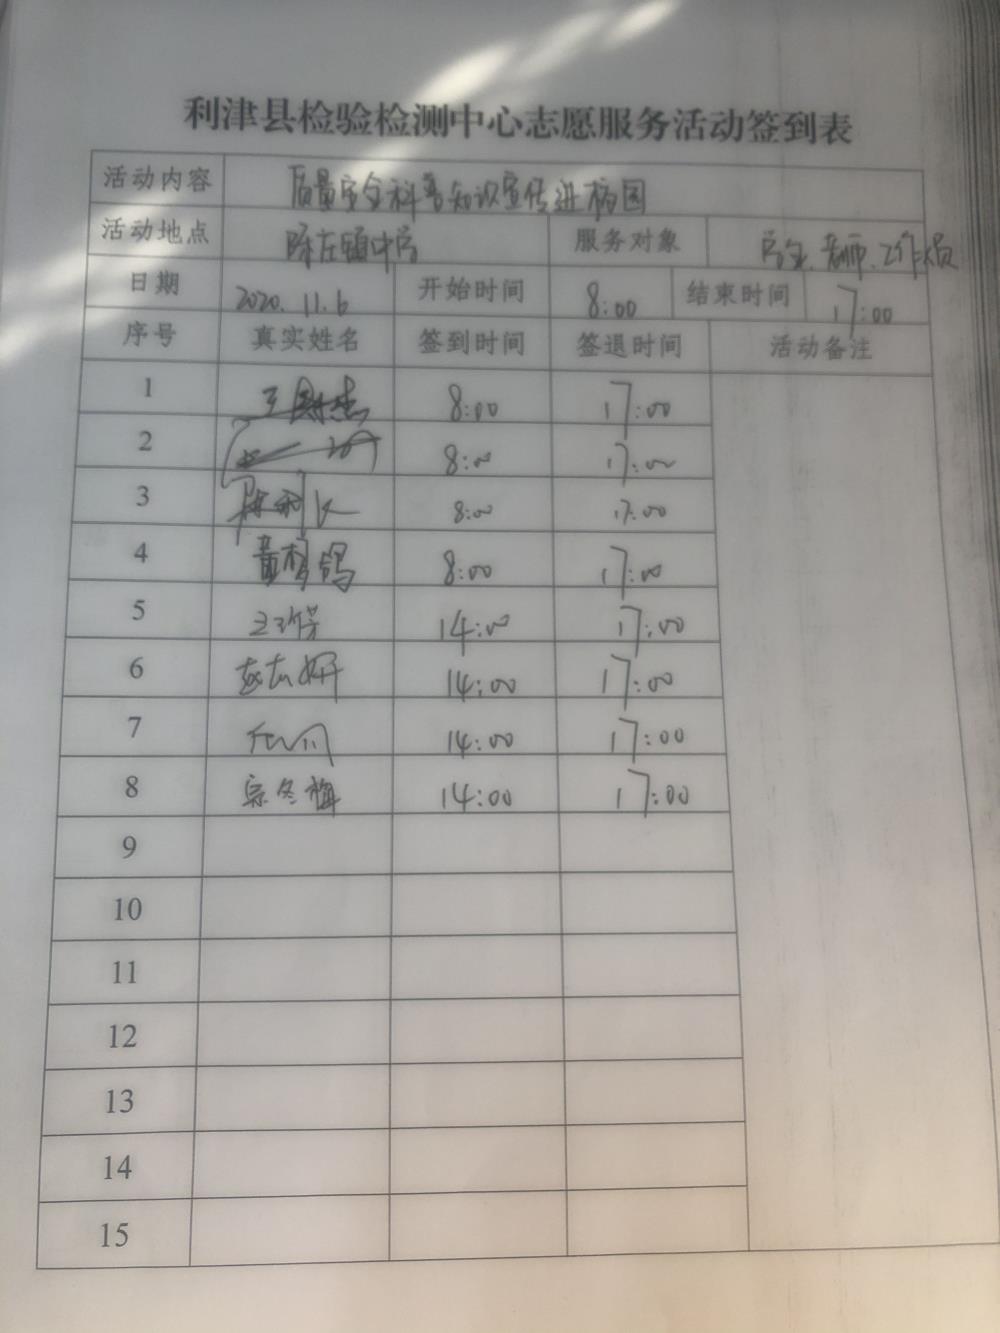 利津县检验检测中心志愿服务活动签到表
活动内容 质量安全科普知识宣传进校园
活动地点 陈庄镇中学 服务对象 学生、老师、工作人员
日期 2020.11.6 开始时间 8:00 结束时间 17:00
序号 真实姓名 签到时间 签退时间 活动备注
1 8:00 17:00
2 8:00 17:00
3 8:00 17:00
4 8:00 17:00
5 14:00 17:00
6 14:00 17:00
7 14:00 17:00
8 宗冬梅 14:00 17:00
9
10
11
12
13
14
15